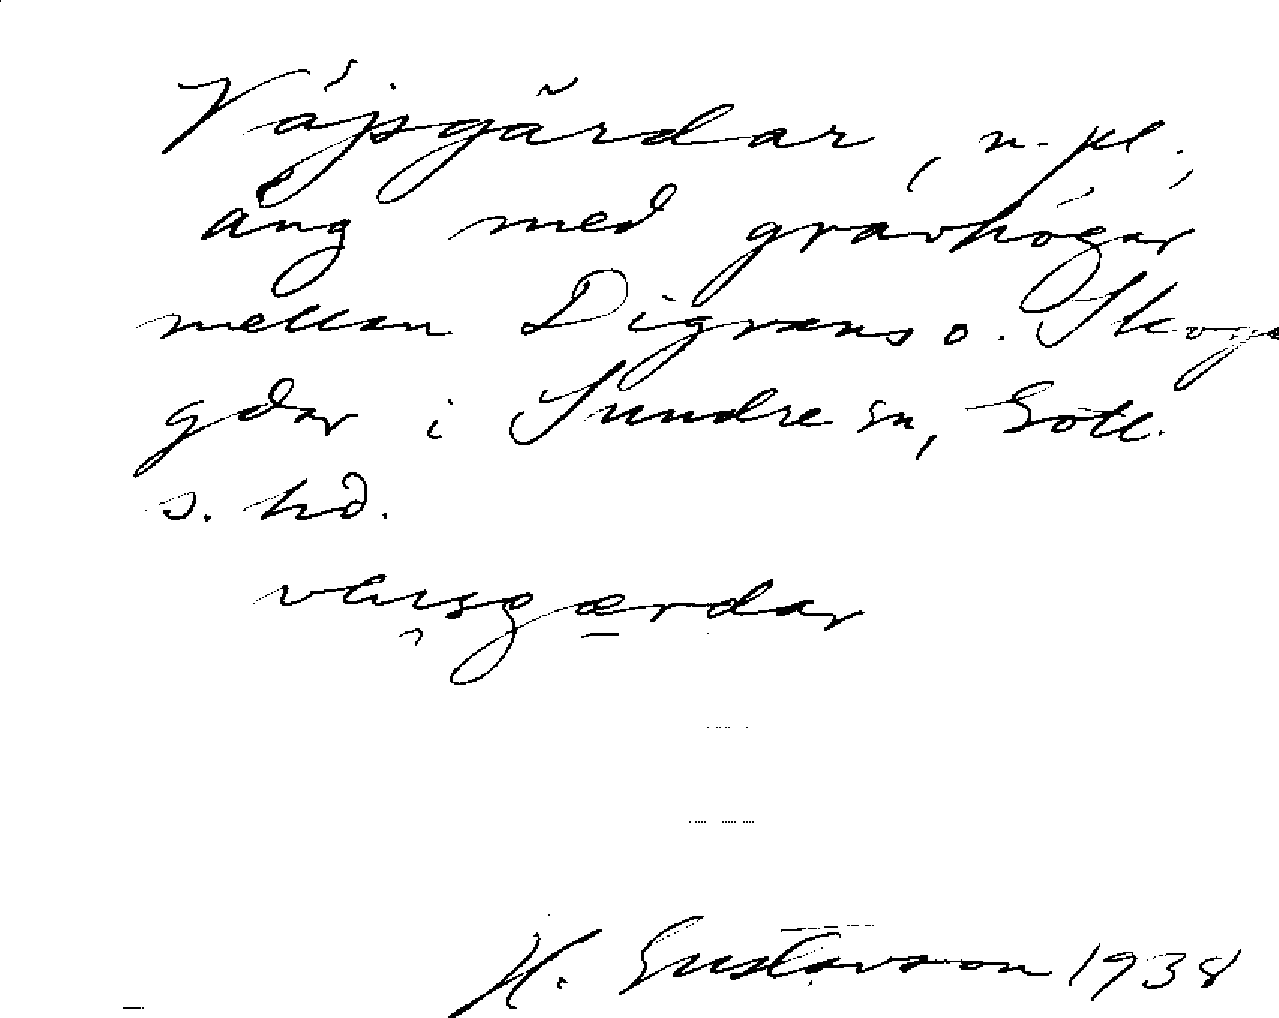 Väjsgärdar, n. pl.,
äng med gravhögar
mellan Digrans o. Skogs
gdar i Sundre sn, Gotl.
s. hd.
H. Gustavson 1938